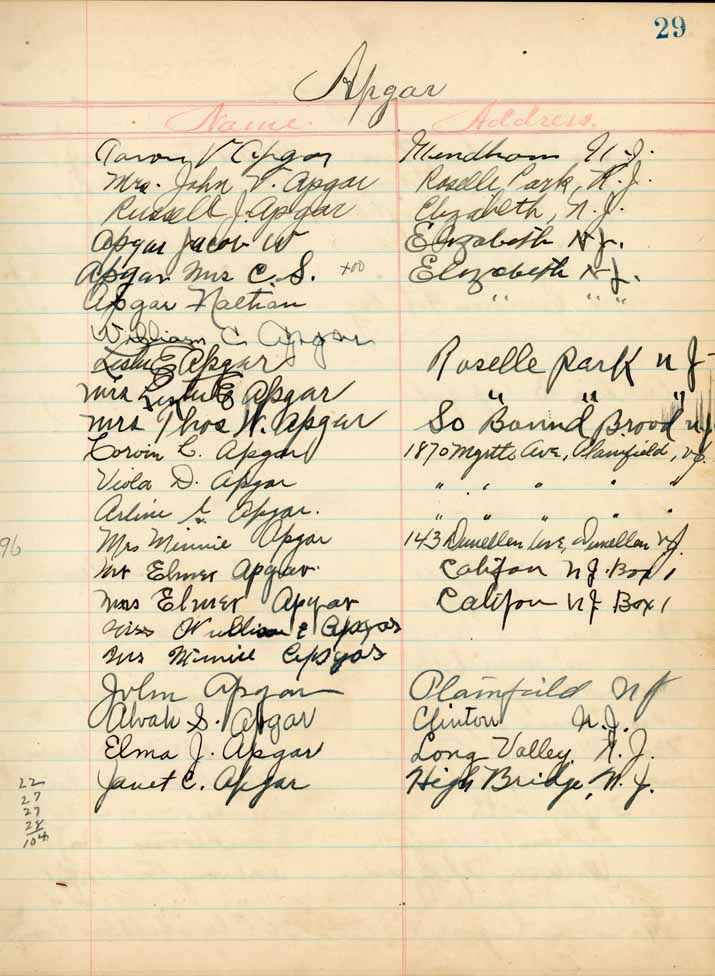 29
Apgar
Name. Address.
Aaron V Apgar Mendham N.J.
Mrs. John V. Apgar Roselle Park, N.J.
Russell J. Apgar Elizabeth, N.J.
Apgar Jacob W Elizabeth N.J.
Apgar Mrs C. S. Elizabeth N.J.
Apgar Nathan " " "
William C. Apgar
Leslie E Apgar Roselle Park N J
Mrs Leslie E Apgar " " "
Mrs Thos W. Apgar So Bound Brook N.J.
Corvin C. Apgar 1870 Myrtle Ave, Plainfield, N.J.
Viola D. Apgar " " " " "
Arline Apgar. " " " "
96 Mrs Minnie Apgar 143 Dunellen Ave, Dunellen N.J.
Mr Elmer Apgar. Califon N.J. Box 1
Mrs Elmer Apgar Califon N.J. Box 1
Miss E Apgar
Mrs Minnie Apgar
John Apgar Plainfeild NJ
Alvah S. Apgar Clinton N.J.
Elma J. Apgar Long Valley N.J.
Janet C. Apgar High Bridge, N.J.
22
27
27
28
104